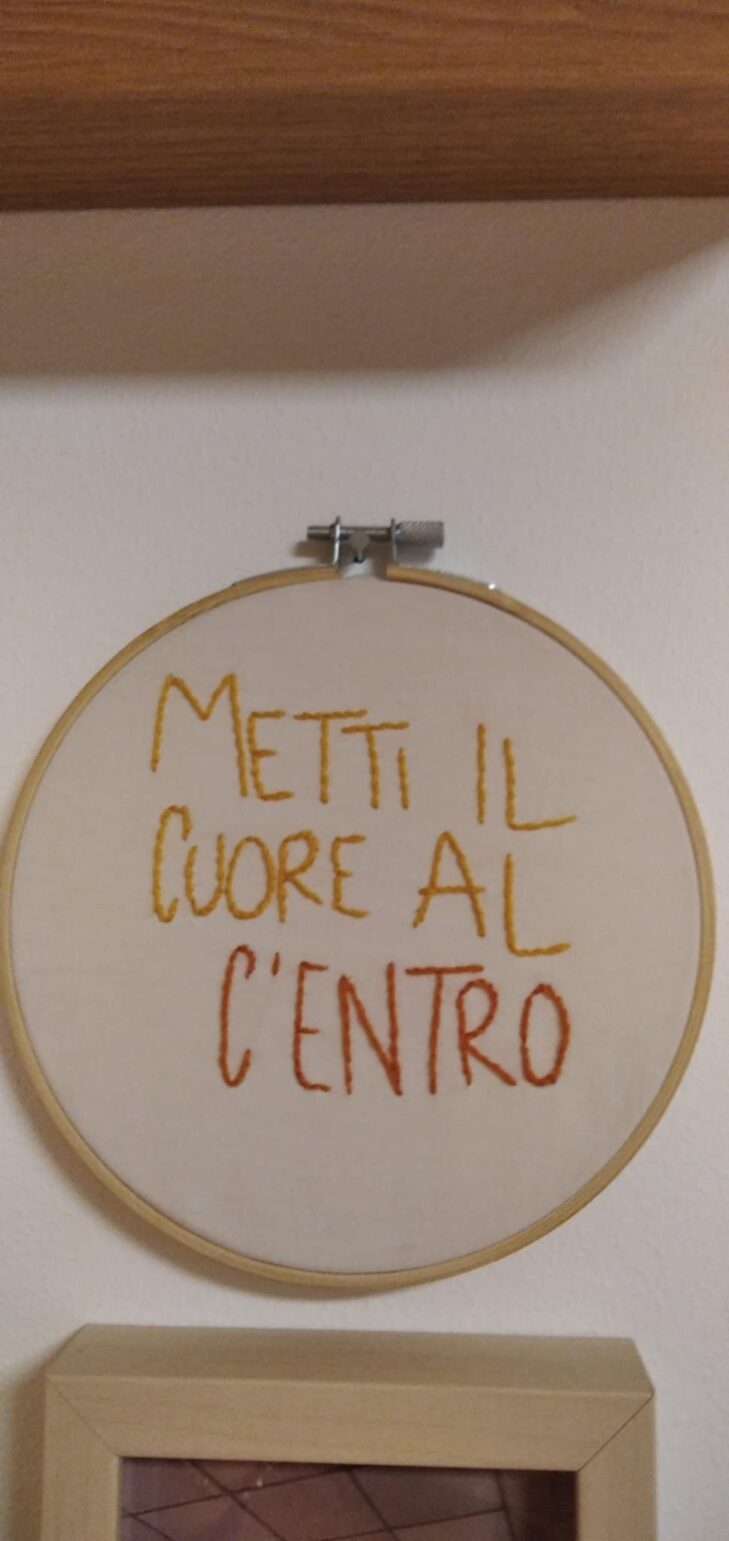 METTI IL
CUORE AL
C'ENTRO